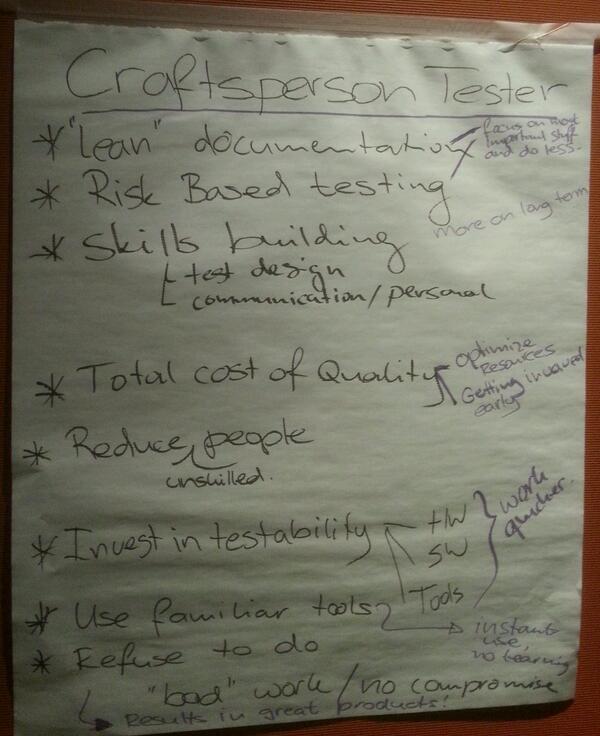 Craftsperson Tester
* "lean" documentation
Focus on most
important stuff
and do less.
* Risk Based testing
more on long term
* Skills building
test design
communication/personal
* Total cost of Quality
Optimize
Resources
Getting invoved
early
* Reduce people
unskilled.
* Invest in testability
HW
SW
Tools
work
quicker.
* Use familiar tools
instant
use,
no learning
* Refuse to do
"bad" work/no compromise
Results in great products!